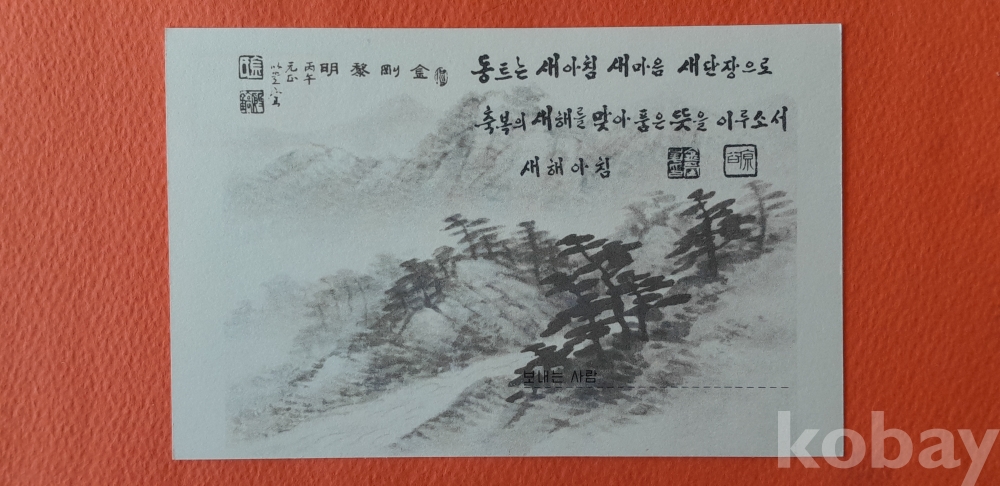 동트는 새아침 새마음 새단장으로
축복의 새해를 맞아 품은 뜻을 이루소서
새해아침
金剛黎明
丙午
元旦
보내는 사람
kobay